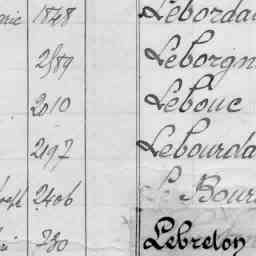 1848 Leborda
2589 Leborgn
2010 Lebouc
2197 Lebourda
2406 Le Bour
730 Lebreton